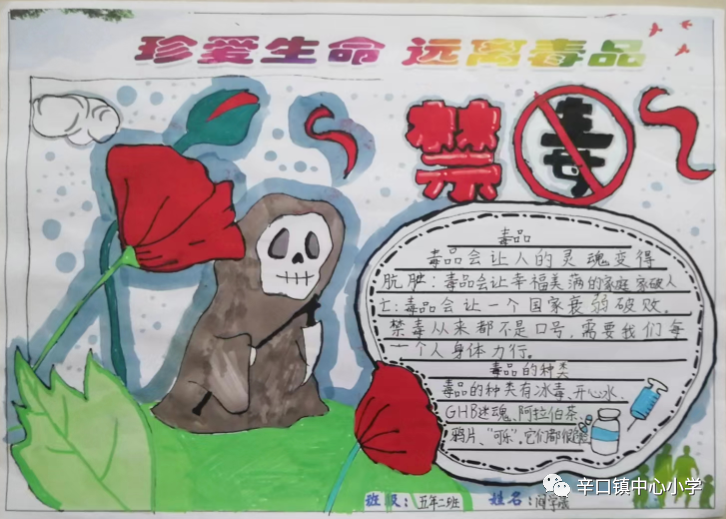 珍爱生命 远离毒品
禁毒
毒品
毒品会让人的灵魂变得
肮脏:毒品会让幸福美满的家庭家破人
亡:毒品会让一个国家衰弱破败。
禁毒从来都不是口号,需要我们每
一个人身体力行。
毒品的种类
毒品的种类有冰毒、开心水、
GHB迷魂、阿拉伯茶、
鸦片、"可乐"。它们都很
班级:五年二班 姓名:闫学
辛口镇中心小学